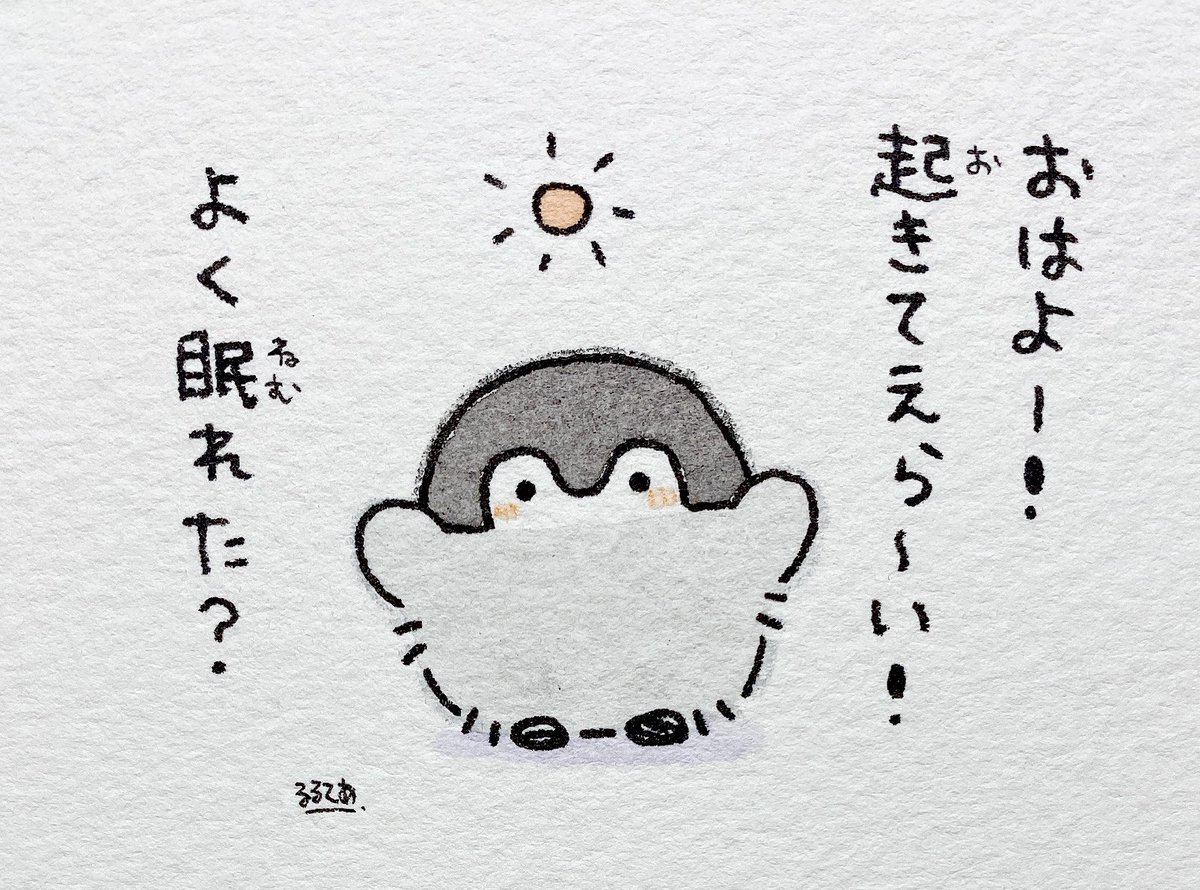 おはよー!
起きてえら~い!
お
よく眠れた?
ねむ
るるてあ